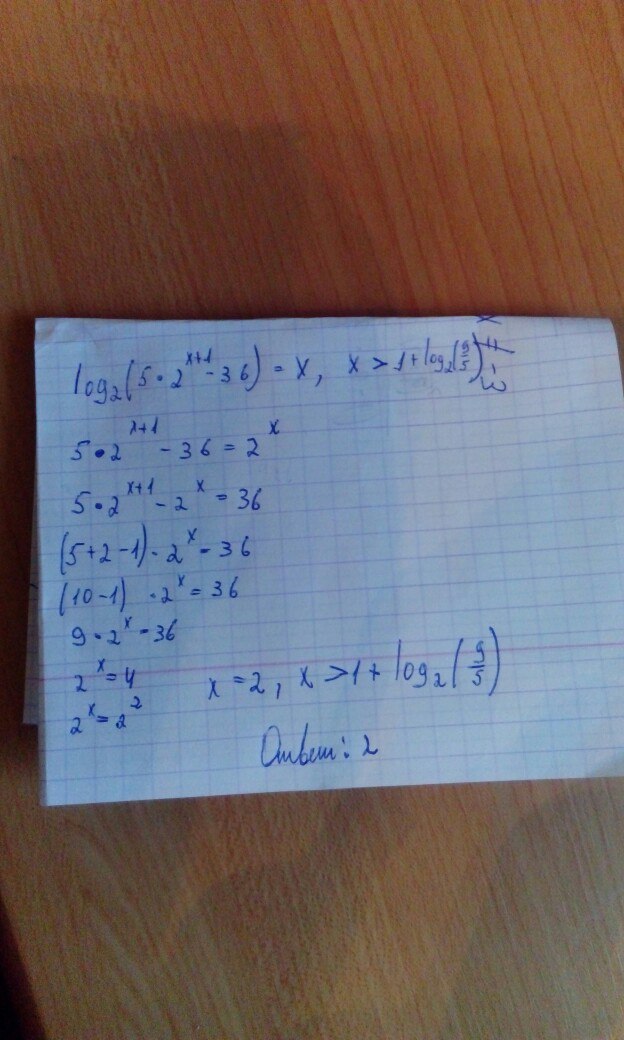 log₂(5 · 2^(x+1) - 36) = x, x > 1 + log₂(9/5)
5 · 2^(x+1) - 36 = 2^x
5 · 2^(x+1) - 2^x = 36
(5+2-1) · 2^x = 36
(10-1) · 2^x = 36
9 · 2^x = 36
2^x = 4
2^x = 2^2
x = 2, x > 1 + log₂(9/5)
Ответ: 2